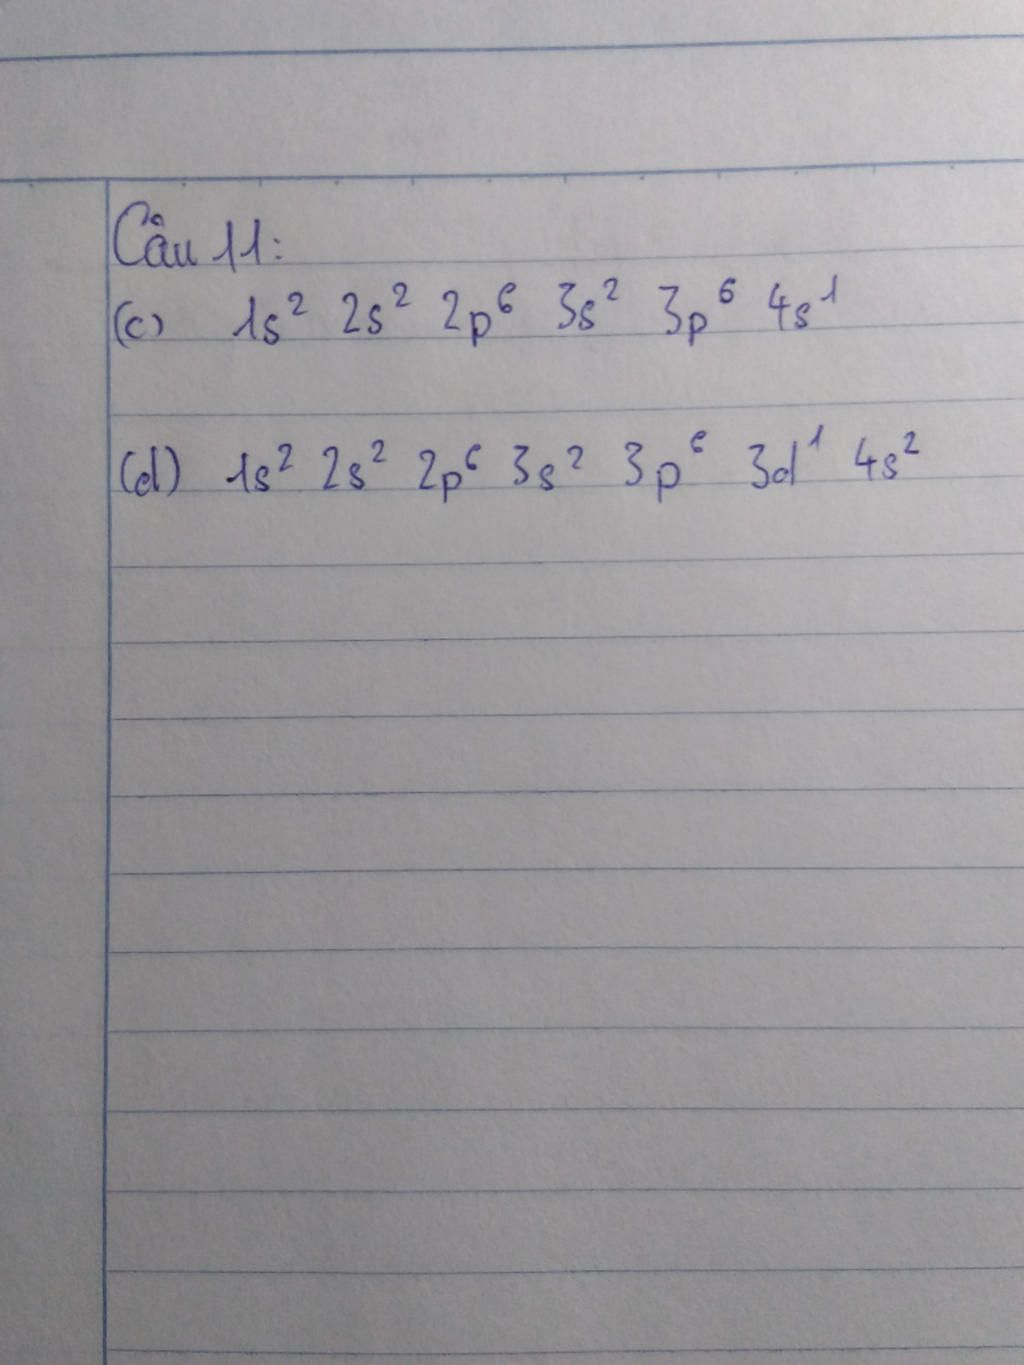 Câu 11:
(c) 1s² 2s² 2p⁶ 3s² 3p⁶ 4s¹
(d) 1s² 2s² 2p⁶ 3s² 3p⁶ 3d¹ 4s²